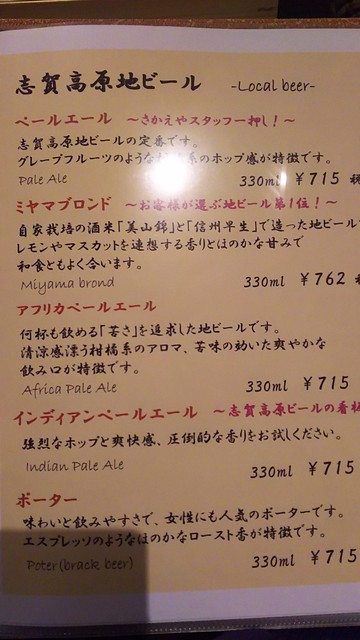 志賀高原地ビール -Local beer-
ペールエール ～さかえやスタッフ一押し！～
志賀高原地ビールの定番です。
グレープフルーツのような 系のホップ感が特徴です。
Pale Ale 330ml ￥715
ミヤマブロンド ～お客様が選ぶ地ビール第1位！～
自家栽培の酒米「美山錦」と「信州早生」で造った地ビール
レモンやマスカットを連想する香りとほのかな甘みで
和食ともよく合います。
Miyama brond 330ml ￥762
アフリカペールエール
何杯も飲める「苦さ」を追求した地ビールです。
清涼感漂う柑橘系のアロマ、苦味の効いた爽やかな
飲み口が特徴です。
Africa Pale Ale 330ml ￥715
インディアンペールエール ～志賀高原ビールの看板
強烈なホップと爽快感、圧倒的な香りをお試しください。
Indian Pale Ale 330ml ￥715
ポーター
味わいと飲みやすさで、女性にも人気のポーターです。
エスプレッソのようなほのかなロースト香が特徴です。
Poter(brack beer) 330ml ￥715